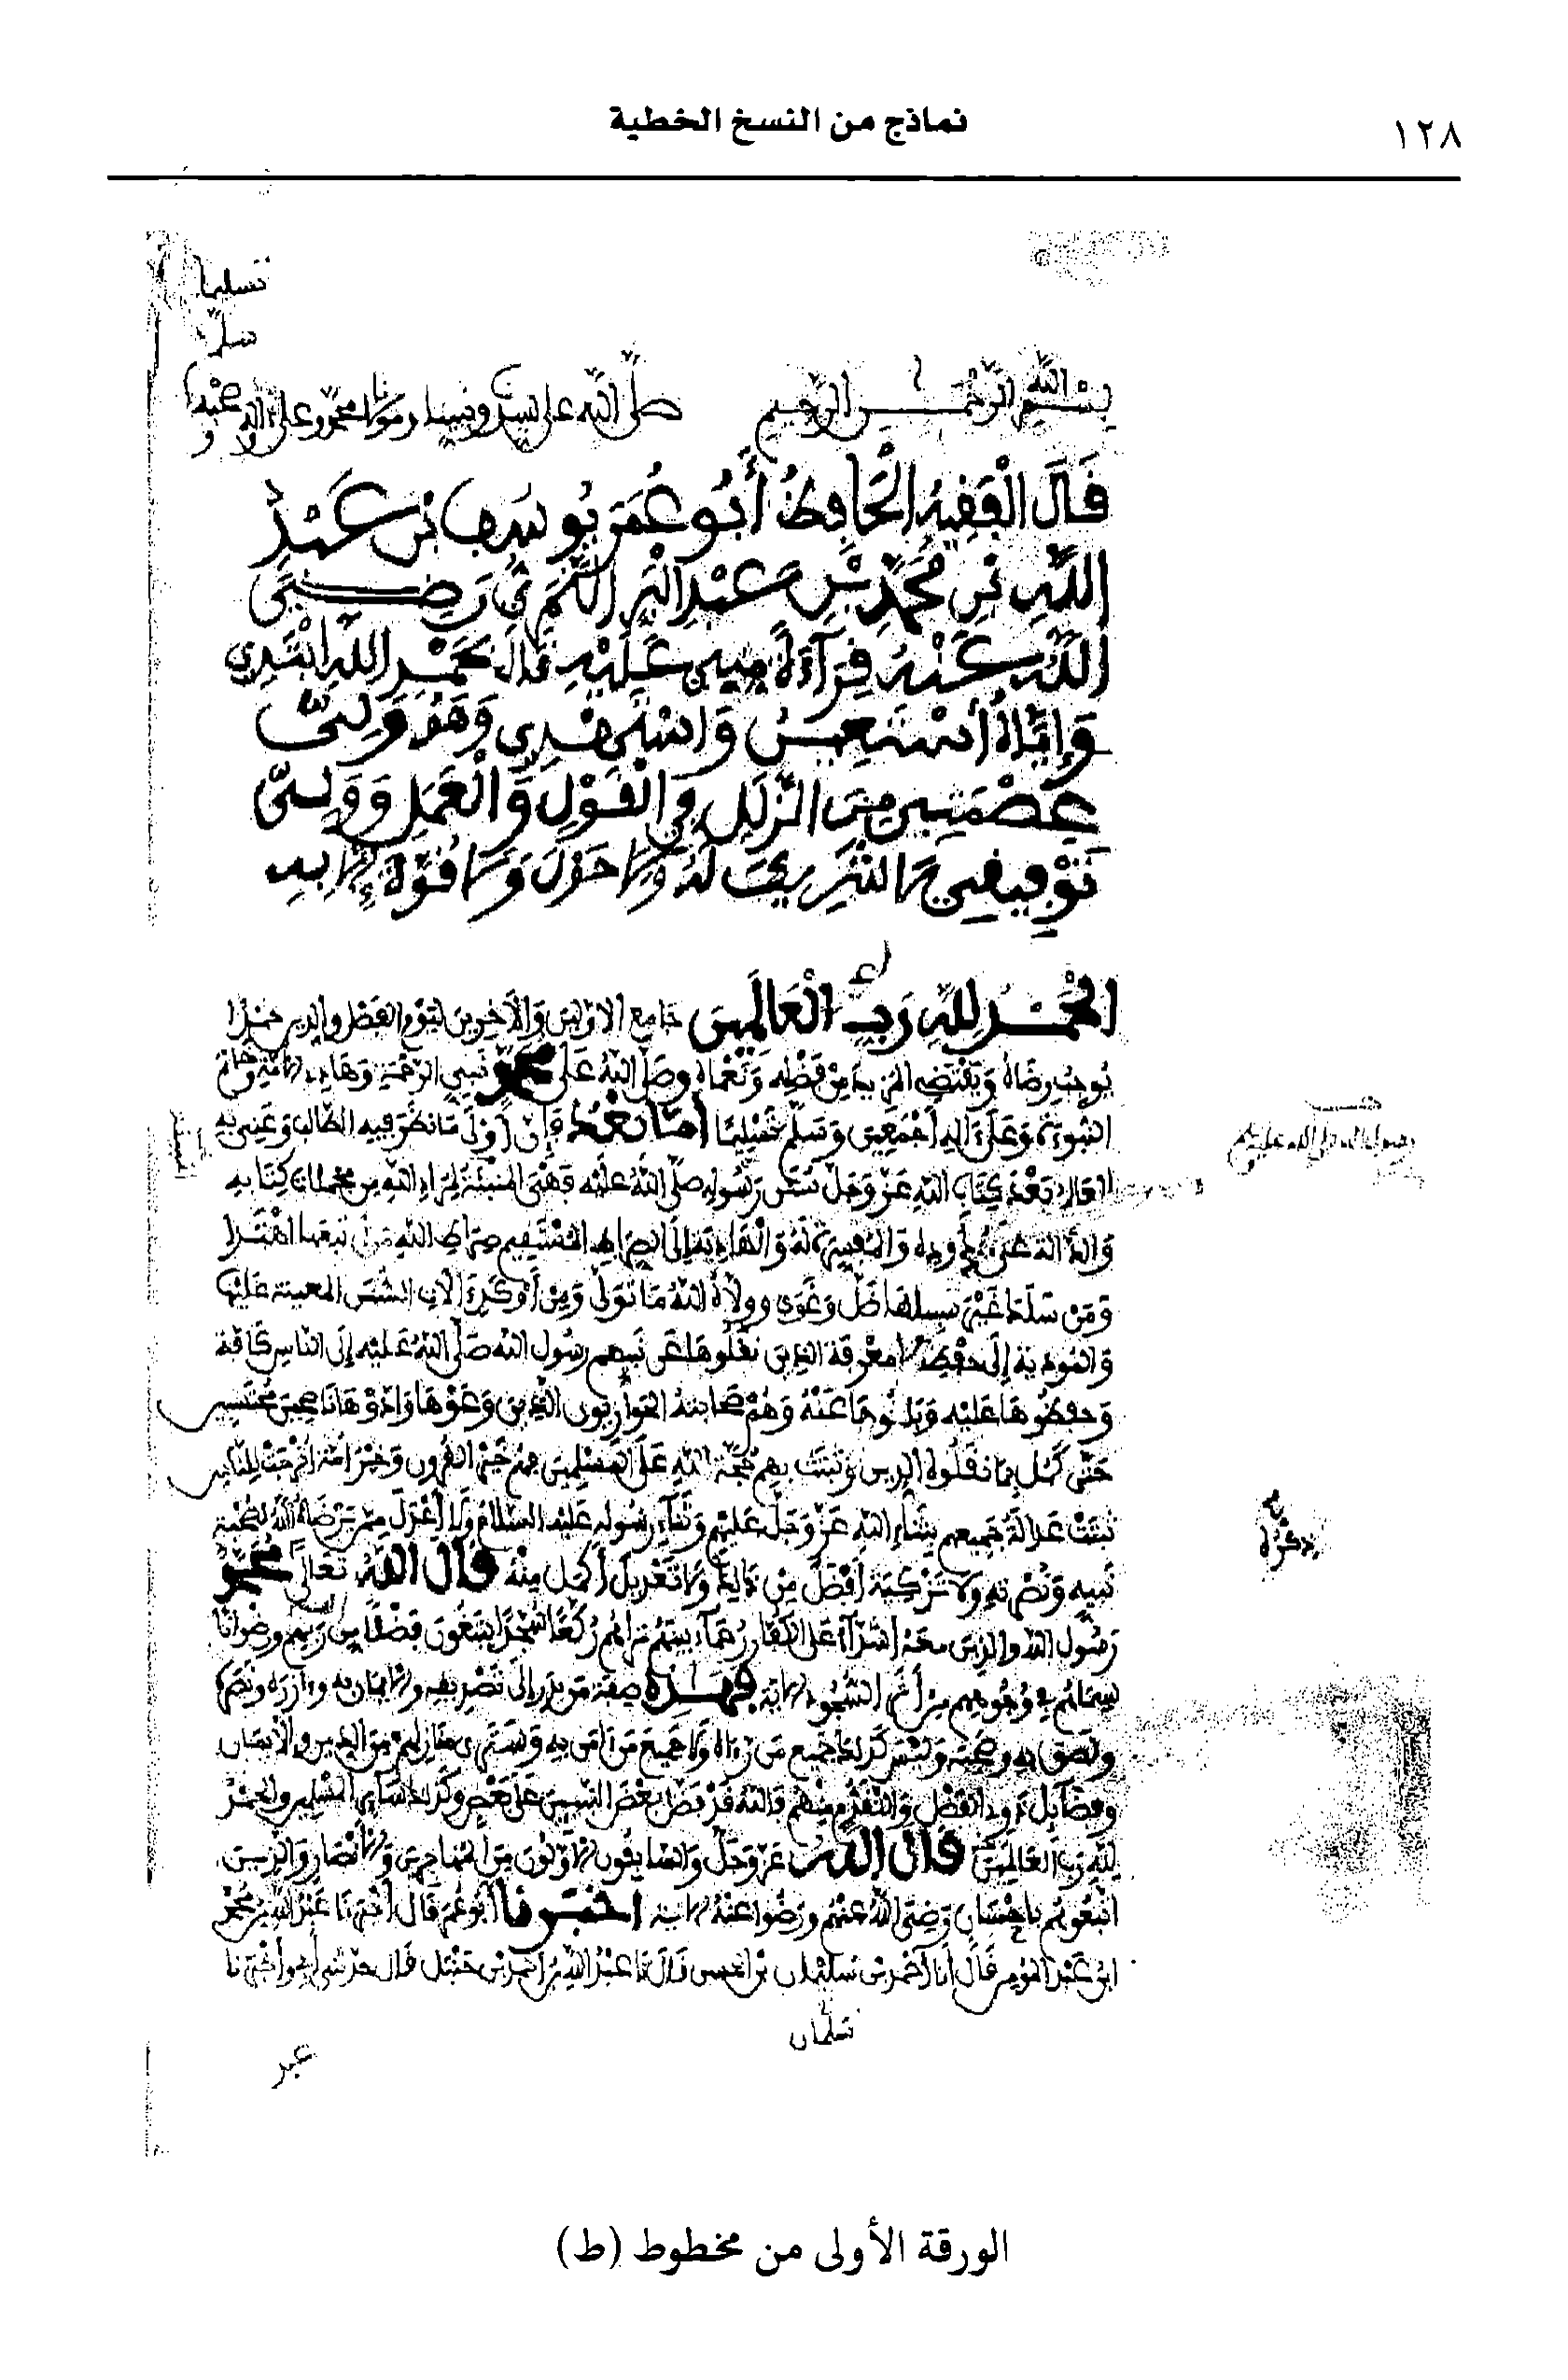 ١٢٨
نماذج من النسخ الخطية
تسليما
بسم الله الرحمن الرحيم صلى الله على سيدنا ونبينا ومولانا محمد وعلى آله وصحبه وسلم
قال الفقيه الحافظ أبو عمر يوسف بن عبد
الله بن محمد بن عبد البر النمري رضي
الله عنه قراءة مني عليه قال بحمد الله ابتدي
وإياه أستعين وأستهدي وهو ولي
عصمتي من الزلل في القول والعمل وولي
توفيقي لا شريك له ولا حول ولا قوة إلا به
الحمد لله رب العالمين جامع الأولين والآخرين ليوم الفصل والدين حمدا
يوجب رضاه ويقتضي المزيد من فضله ونعماه وصلى الله على محمد نبي الرحمة وهادي الأمة وخاتم
النبوة وعلى آله أجمعين وسلم تسليما أما بعد فإن أولى ما نظر فيه الطالب وعني به
العالم بعد كتاب الله عز وجل سنن رسوله صلى الله عليه فهي المبينة لمراد الله من مجملات كتابه
والدالة على حدوده والمفسرة له والهادية إلى الصراط المستقيم صراط الله من اتبعها اهتدا
ومن سلك غير سبيلها ضل وغوى وولاه الله ما تولى ومن أوكد آلات السنن المعينة عليها
والمودية إلى حفظها معرفة الذين نقلوها عن نبيهم رسول الله صلى الله عليه إلى الناس كافة
وحفظوها عليه وبلغوها عنه وهم صحابته الحواريون الذين وعوها وأدوها ناصحين محتسبين
حتى كمل بما نقلوه الدين وثبتت بهم حجة الله على المسلمين فهم خير القرون وخير أمة أخرجت للناس
ثبتت عدالة جميعهم بثناء الله عز وجل عليهم وثناء رسوله عليه السلام ولا أعدل ممن ارتضاه الله لصحبة
نبيه ونصرته ولا تزكية أفضل من ذلك ولا تعديل أكمل منه قال الله تعالى محمد
رسول الله والذين معه أشداء على الكفار رحماء بينهم تراهم ركعا سجدا يبتغون فضلا من ربهم ورضوانا
سيماهم في وجوههم من أثر السجود الآية فهذه صفة من بدر إلى تصديقه والإيمان به وءازره ونصره
ولصق به وصحبه وليس كذلك جميع من رآه ولا جميع من آمن به وسترى منازلهم من الدين والإيمان
وفضائل ذوي الفضل والتقدم منهم فالله قد فضل بعض النبيين على بعض وكذلك سائر المسلمين والحمد
لله رب العالمين قال الله عز وجل والسابقون الأولون من المهاجرين والأنصار والذين
اتبعوهم بإحسان رضي الله عنهم ورضوا عنه الآية أخبرنا أبو عمر قال أخبرنا عبد الله بن محمد
ابن عبد المؤمن قال أنا أحمد بن سليمان بن الحسن قال نا عبد الله بن أحمد بن حنبل قال حدثني أبي وأخبرنا
سلمان
عبد
الورقة الأولى من مخطوط (ط)